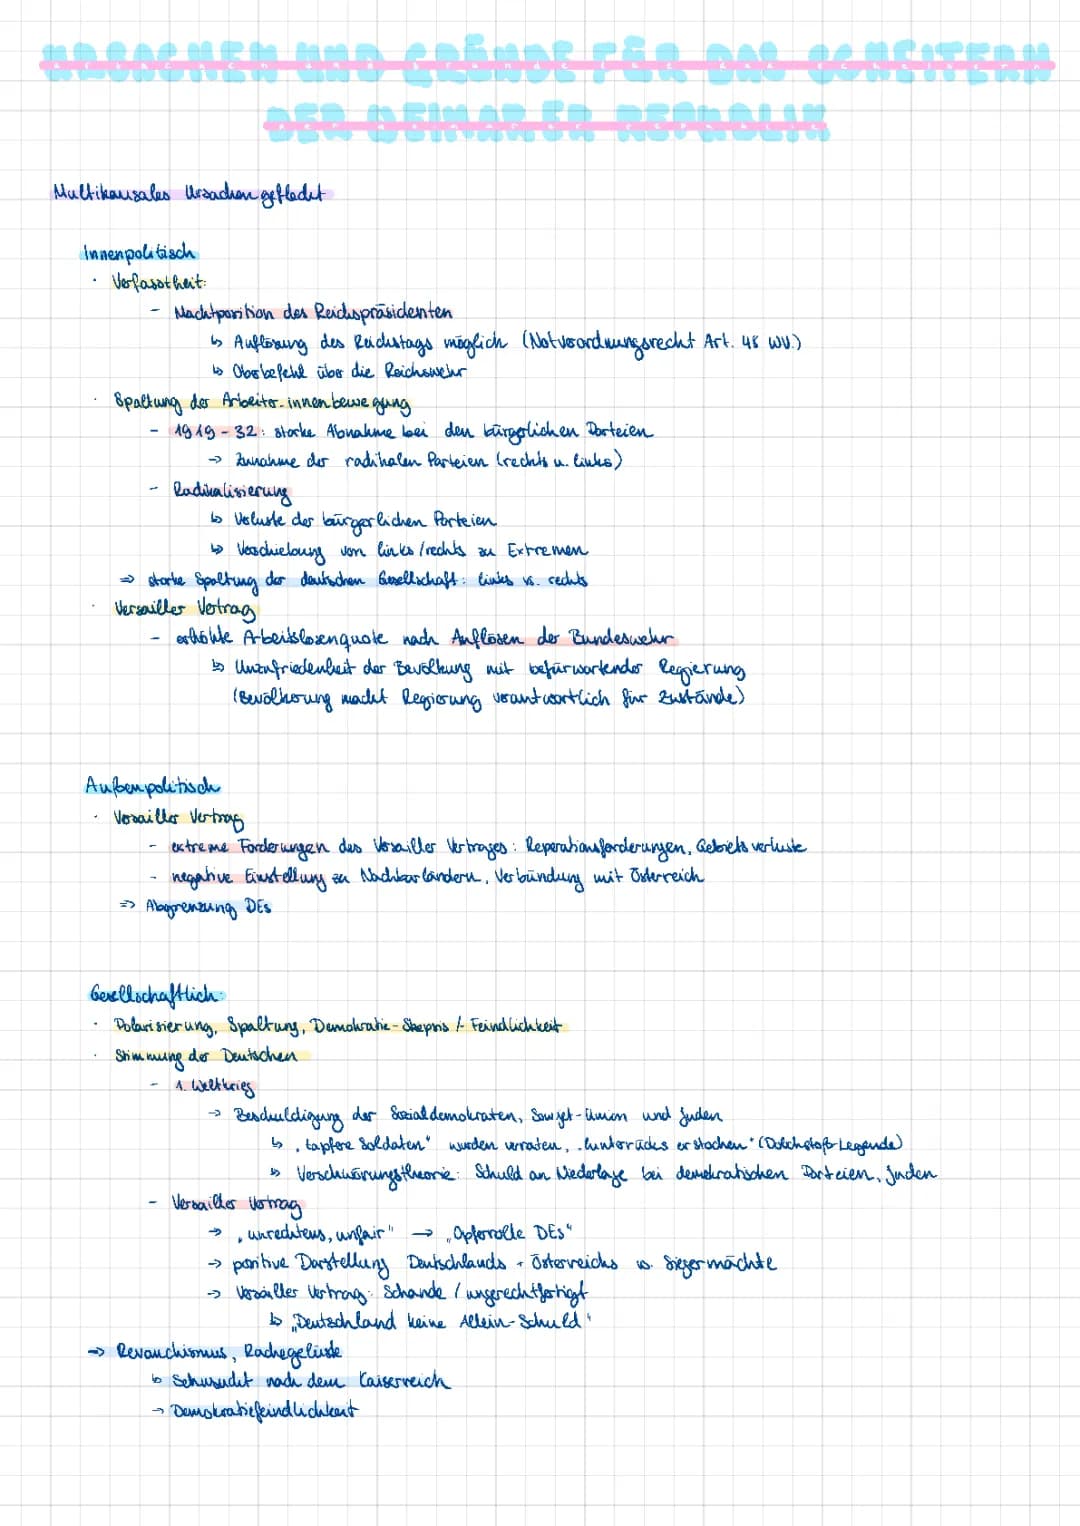 URSACHEN UND GRÜNDE FÜR DAS SCHEITERN
DER WEIMARER REPUBLIK
Multikausales Ursachengeflecht
Innenpolitisch
· Verfasstheit:
- Machtposition des Reichspräsidenten
↳ Auflösung des Reichstags möglich (Notverordnungsrecht Art. 48 WV.)
↳ Oberbefehl über die Reichswehr
· Spaltung der Arbeiter-innenbewegung
- 1919-32: starke Abnahme bei den bürgerlichen Parteien
→ Zunahme der radikalen Parteien (rechts u. links)
- Radikalisierung
↳ Verluste der bürgerlichen Parteien
↳ Verschiebung von links/rechts zu Extremen
⇒ starke Spaltung der deutschen Gesellschaft: links vs. rechts
· Versailler Vertrag
- erhöhte Arbeitslosenquote nach Auflösen der Bundeswehr
↳ Unzufriedenheit der Bevölkung mit befürwortender Regierung
(Bevölkerung macht Regierung verantwortlich für Zustände)
Außenpolitisch
· Versailler Vertrag
- extreme Forderungen des Versailler Vertrages: Reperationsforderungen, Gebietsverluste
- negative Einstellung zu Nachbarländern, Verbündung mit Österreich
⇒ Abgrenzung DEs
Gesellschaftlich:
· Polarisierung, Spaltung, Demokratie-Skepsis /-Feindlichkeit
· Stimmung der Deutschen
- 1. Weltkrieg
→ Beschuldigung der Sozialdemokraten, Sowjet-Union und Juden
↳ „tapfere Soldaten" wurden verraten, „hinterrücks erstochen" (Dolchstoß-Legende)
↳ Verschwörungstheorie: Schuld an Niederlage bei demokratischen Parteien, Juden
- Versailler Vertrag
→ „unrechtens, unfair" → „Opferrolle DEs"
→ positive Darstellung Deutschlands + Österreichs vs. Siegermächte
→ Versailler Vertrag: Schande / ungerechtfertigt
↳ „Deutschland keine Allein-Schuld"
→ Revanchismus, Rachegelüste
↳ Sehnsucht nach dem Kaiserreich
→ Demokratiefeindlichkeit